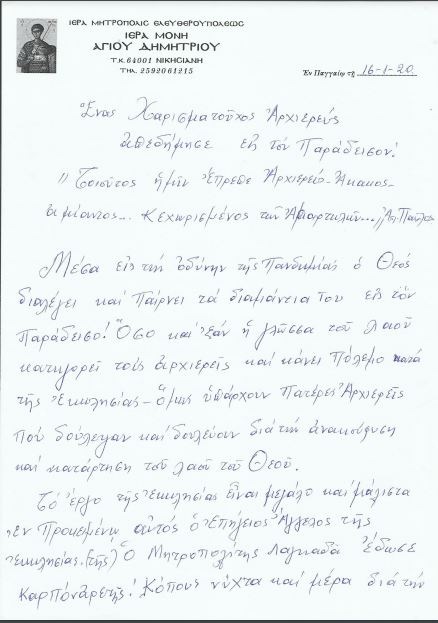 ΙΕΡΑ ΜΗΤΡΟΠΟΛΙΣ ΕΛΕΥΘΕΡΟΥΠΟΛΕΩΣ
ΙΕΡΑ ΜΟΝΗ
ΑΓΙΟΥ ΔΗΜΗΤΡΙΟΥ
Τ.Κ. 64001 ΝΙΚΗΣΙΑΝΗ
ΤΗΛ. 2592061215
Ἐν Παγγαίῳ τῇ 16-1-20
Ἕνας Χαρισματοῦχος Ἀρχιερεύς
ἀπεδήμησε εἰς τόν Παράδεισον!
"Τοιοῦτος ἡμῖν Ἔπρεπε Ἀρχιερεύς-Ἄκακος-
ἀμίαντος... κεχωρισμένος τῶν Ἁμαρτωλῶν...
Μέσα εἰς τήν ὀδύνην τῆς Πανδημίας ὁ Θεός
διαλέγει καί παίρνει τά διαμάντια Του εἰς τόν
Παράδεισο! Ὅσο καί ἐάν ἡ γλῶσσα τοῦ λαοῦ
κατηγορεῖ τούς ἀρχιερεῖς καί κάνει Πόλεμο κατά
τῆς Ἐκκλησίας - ὅμως ὑπάρχουν Πατέρες Ἀρχιερεῖς
πού δούλεψαν καί δουλεύουν διά τήν ἀνακούφιση
καί κατάρτηση τοῦ λαοῦ τοῦ Θεοῦ.
Τό ἔργο τῆς Ἐκκλησίας εἶναι μεγάλο καί μάλιστα
Ἐν Προκειμένῳ αὐτός ὁ Ἐπήγειος Ἄγγελος τῆς
Ἐκκλησίας (τῆς) Ὁ Μητροπολίτης Λαγκαδᾶ Ἔδωσε
Καρπόν Ἀρετῆς! Κόπους νύχτα καί μέρα διά τήν